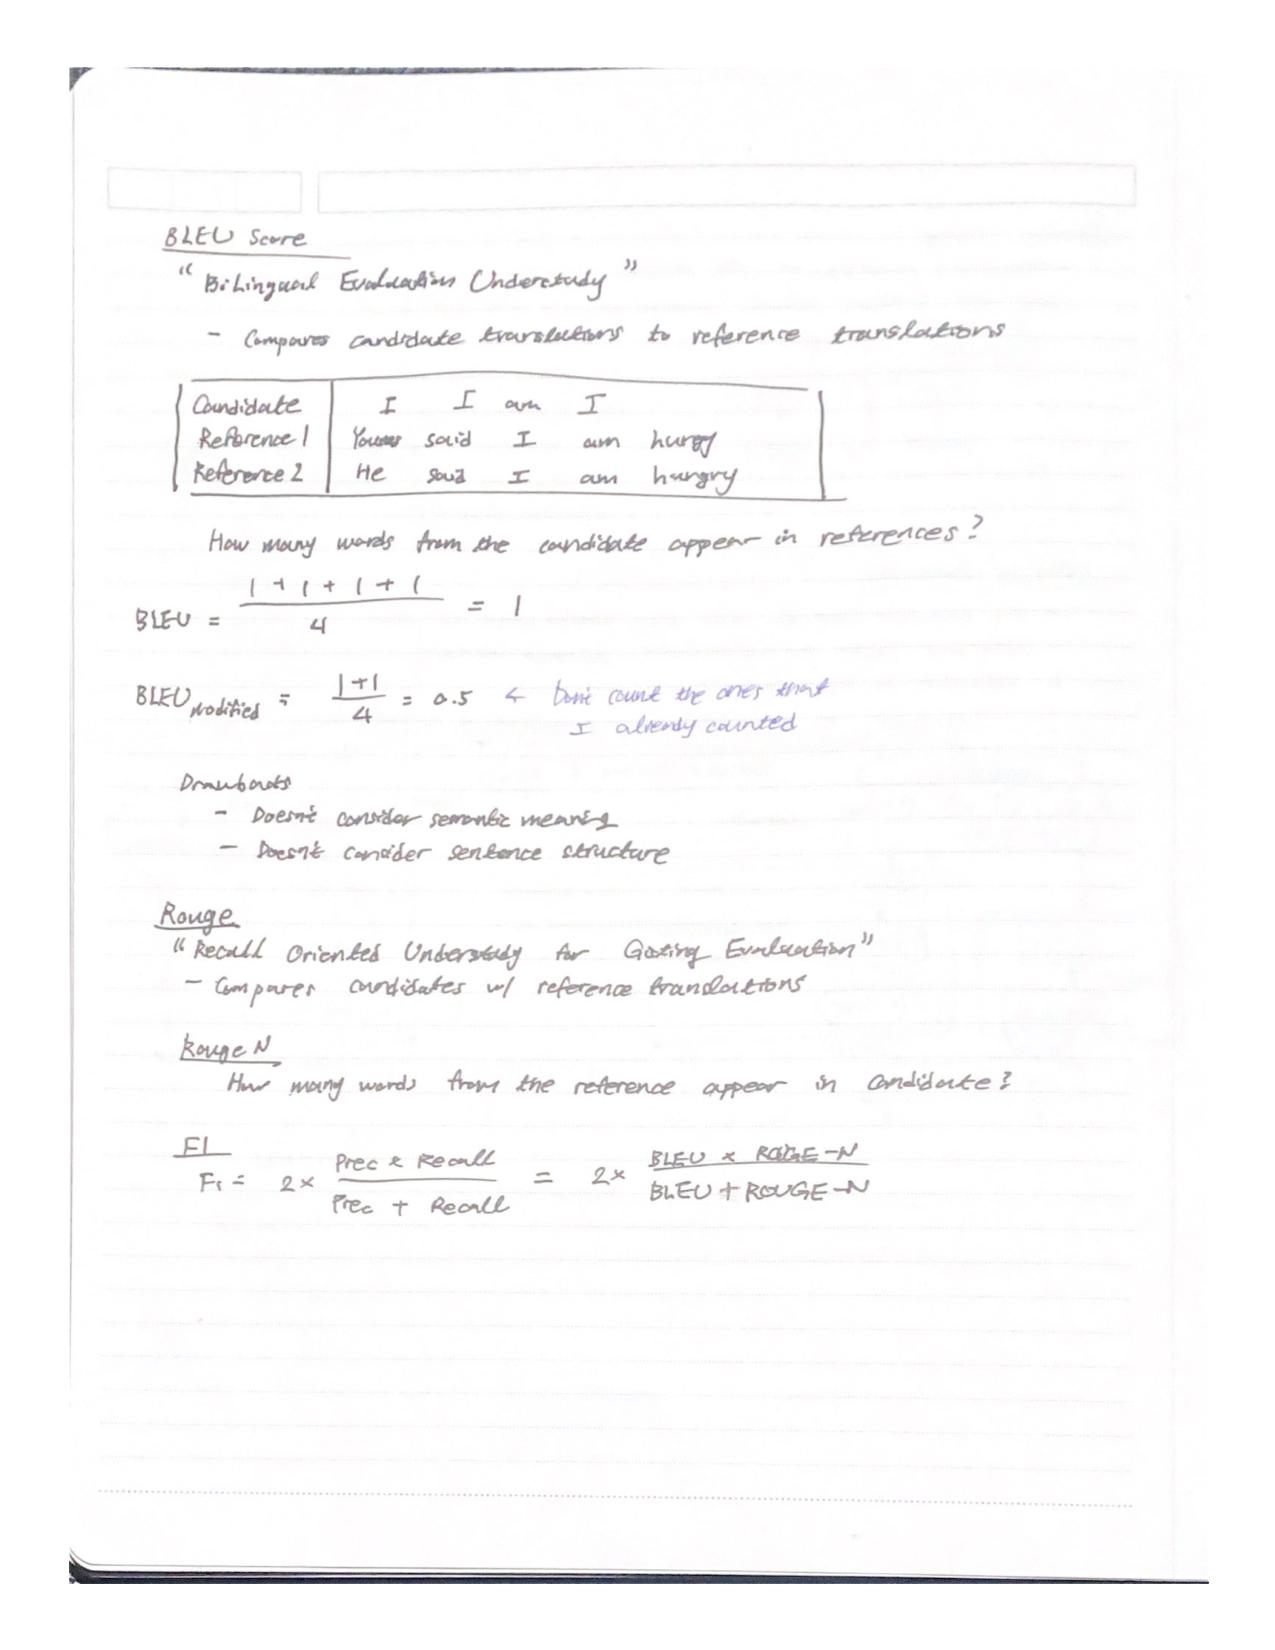 BLEU Score
"BiLingual Evaluation Understudy"
- Compares candidate translations to reference translations
Candidate I I am I
Reference 1 said I am hungy
Reference 2 He said I am hungry
How many words from the candidate appear in references?
BLEU = (1 + 1 + 1 + 1) / 4 = 1
BLEU modified = (1+1) / 4 = 0.5 ← Don't count the ones that
I already counted
Drawbacks
- Doesn't consider semantic meaning
- Doesn't consider sentence structure
Rouge
"Recall Oriented Understudy for Evaluation"
- Compares candidates w/ reference translations
Rouge N
How many words from the reference appear in candidate?
F1
F1 = 2 × (Prec × Recall) / (Prec + Recall) = 2 × (BLEU × ROUGE-N) / (BLEU + ROUGE-N)